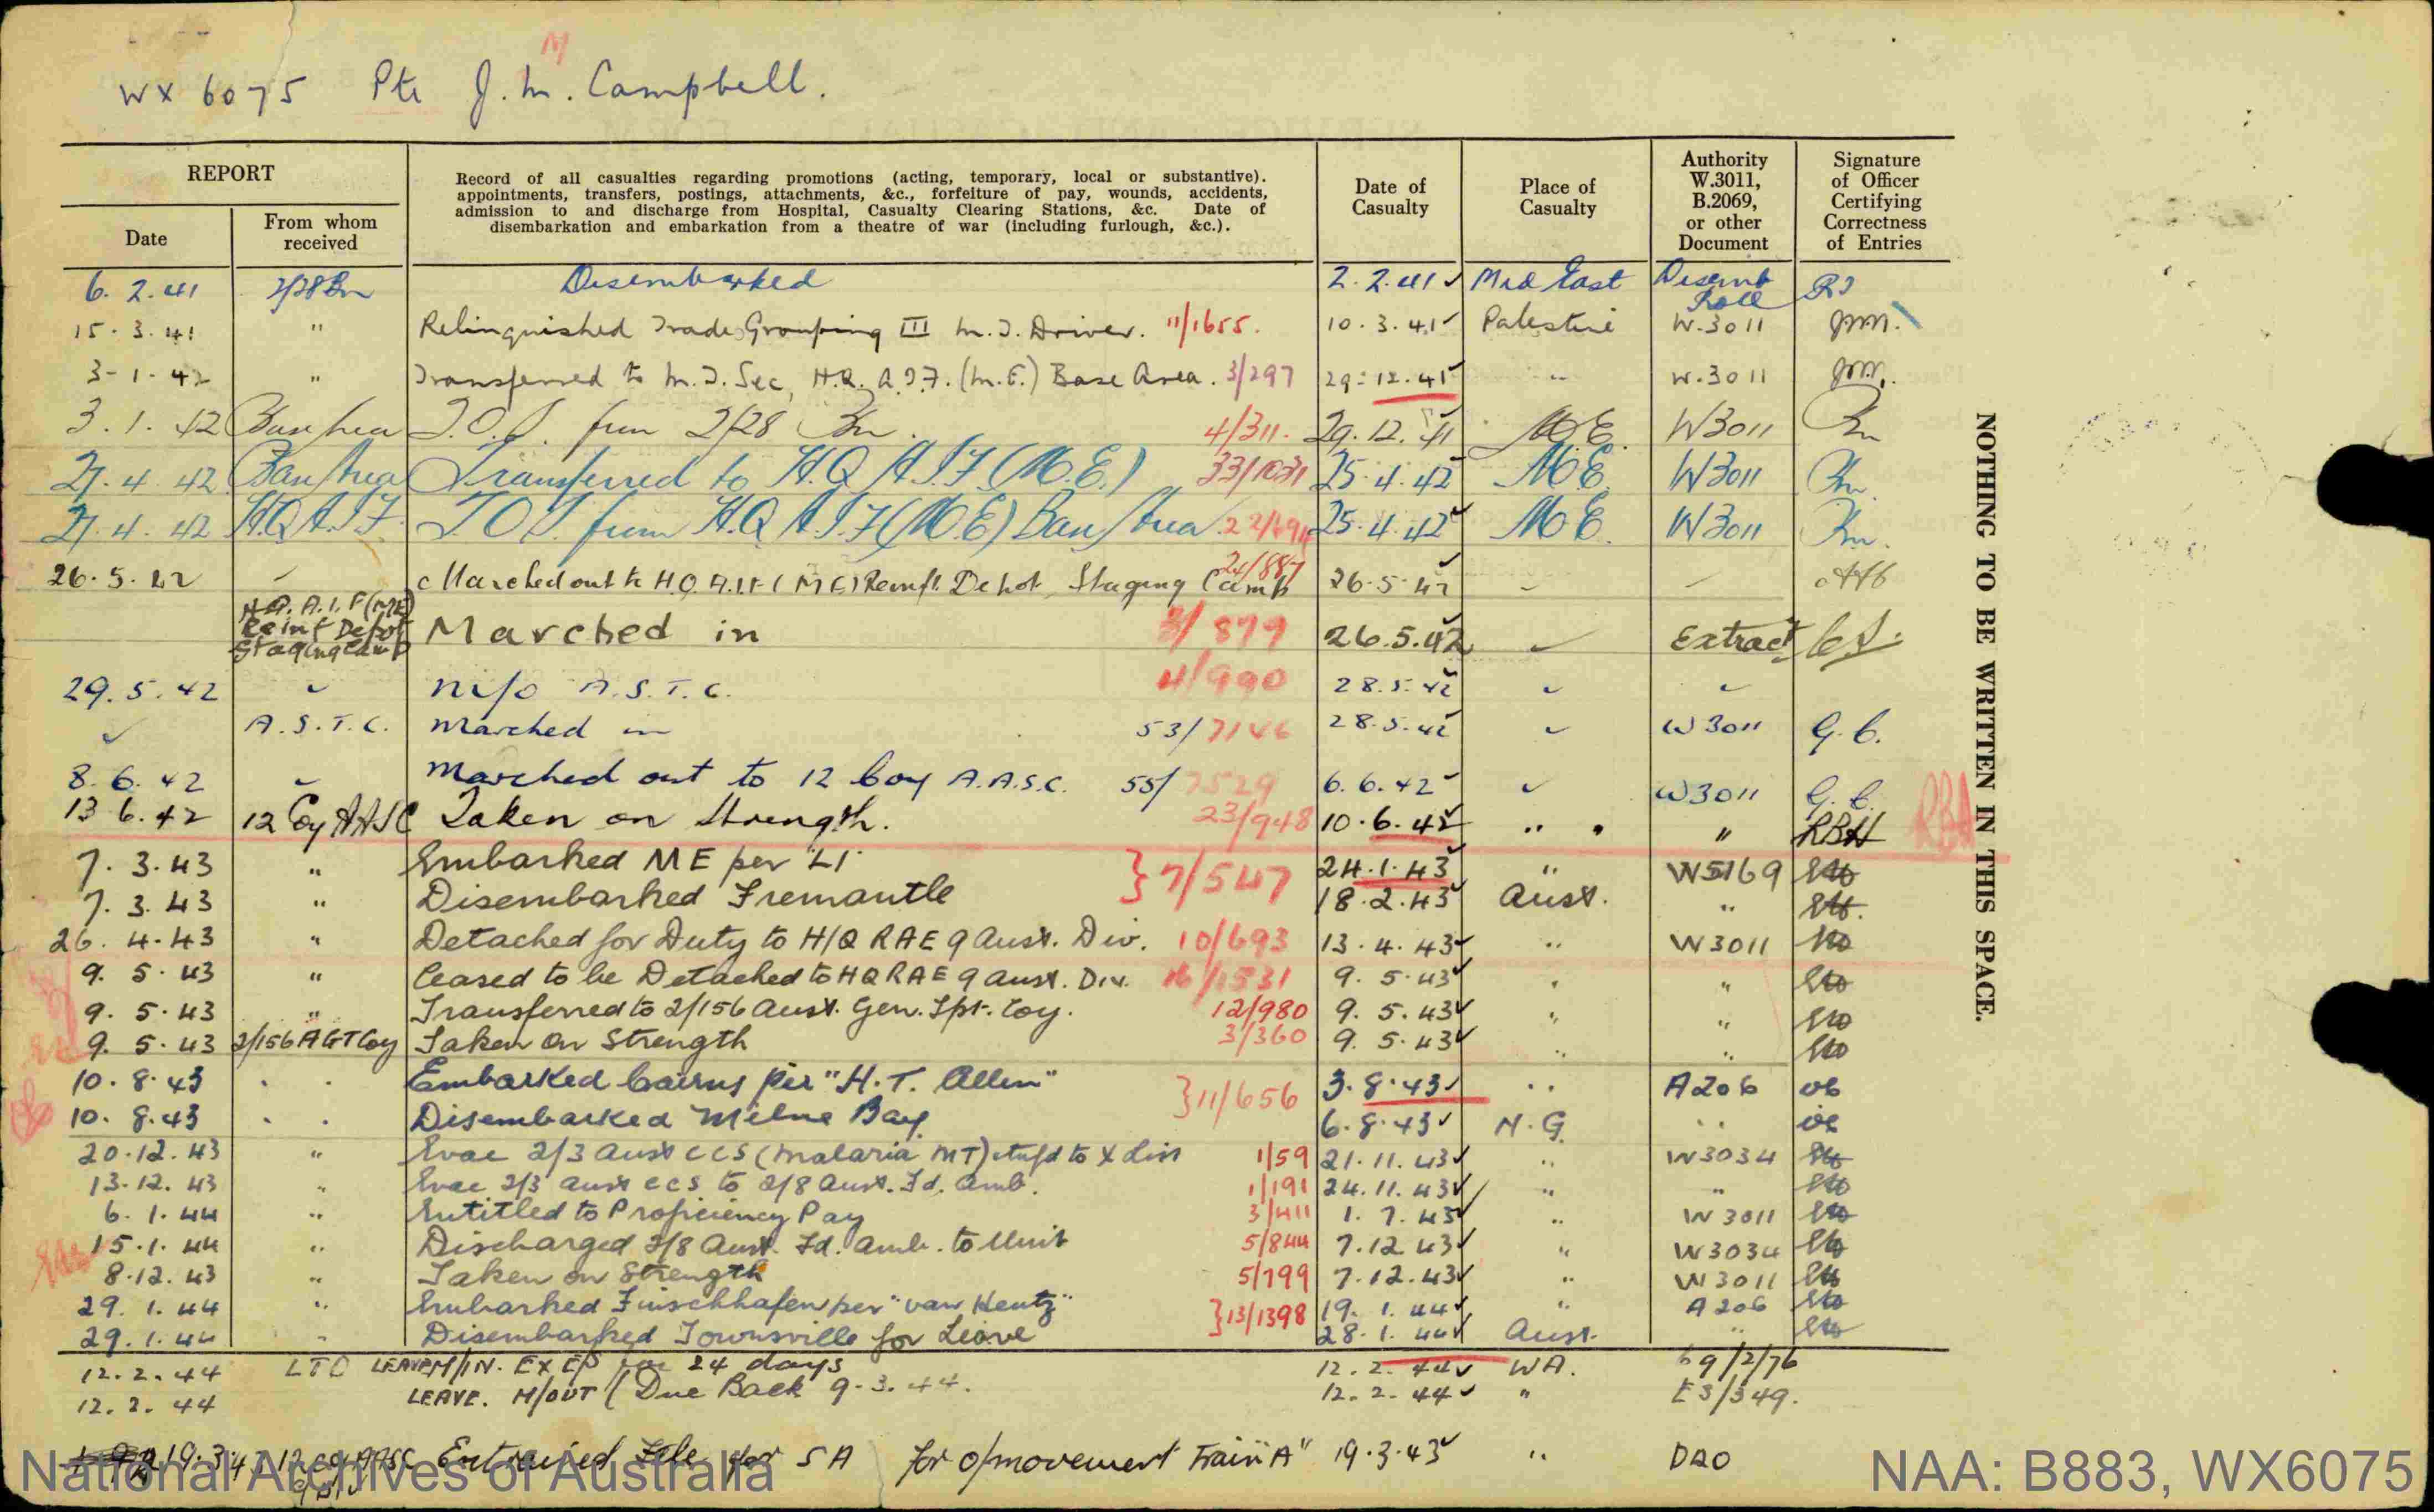 M
WX 6075 Pte J. M. Campbell.
REPORT
Date
From whom received
Record of all casualties regarding promotions (acting, temporary, local or substantive).
appointments, transfers, postings, attachments, &c., forfeiture of pay, wounds, accidents,
admission to and discharge from Hospital, Casualty Clearing Stations, &c. Date of
disembarkation and embarkation from a theatre of war (including furlough, &c.).
Date of Casualty
Place of Casualty
Authority W.3011, B.2069, or other Document
Signature of Officer Certifying Correctness of Entries
6. 2. 41 2/28 Bn Disembarked 2. 2. 41 Mid East Disemb Roll
15. 3. 41 " Relinquished Trade Grouping III M.T. Driver. 11/1655. 10. 3. 41 Palestine W.3011
3-1-42 " Transferred to M.T. Sec, H.Q. A.I.F. (M.E.) Base Area. 3/297 29-12.41 " W.3011
3. 1. 42 Base Area T.O.S. from 2/28 Bn. 4/311. 29. 12. 41 M E. W3011
27. 4. 42 Base Area Transferred to H.Q A.I.F (M.E.) 33/1031 25. 4. 42 M.E. W3011
27. 4. 42 H.Q A.I.F. T.O.S. from H.Q A.I.F (M.E) Base Area 25. 4. 42 M E. W3011
26. 5. 42 Marched out to H.Q. A.I.F. (M E) Reinft. Depot, Staging Camp 24/887 26-5-42
H.Q. A.I.F (ME) Reinf Depot Staging Camp Marched in 3/879 26.5.42 Extract
29. 5. 42 M/o A.S.T.C. 4/990 28.5.42
A.S.T.C. Marched in 53/7146 28.5.42 W3011 G.C.
8. 6. 42 Marched out to 12 Coy A.A.S.C. 55/7529 6. 6. 42 W3011 G.C.
13 6. 42 12 Coy AASC Taken on Strength. 23/948 10. 6. 42 " " RBH RBH
7. 3. 43 " Embarked ME per L1 } 7/547 24.1.43 " W5169
7. 3. 43 " Disembarked Fremantle 18. 2. 43 Aust. "
26. 4. 43 " Detached for Duty to H/Q RAE 9 Aust. Div. 10/693 13. 4. 43 " W3011
9. 5. 43 " Ceased to be Detached to HQ RAE 9 Aust. Div. 16/1531 9. 5. 43 " "
9. 5. 43 " Transferred to 2/156 Aust. Gen. Tpt. Coy. 12/980 9. 5. 43 " "
9. 5. 43 2/156 AGT Coy Taken On Strength 3/360 9. 5. 43 " "
10. 8. 43 " " Embarked Cairns per "H.T. Allen" } 11/656 3. 8. 43 " A206
10. 8. 43 " " Disembarked Milne Bay. 6. 8. 43 N.G. "
20. 12. 43 " Evac 2/3 Aust CCS (Malaria MT) to X List 1/59 21. 11. 43 " W3034
13. 12. 43 " Evac 2/3 Aust CCS to 2/8 Aust. Fd. Amb. 1/191 24. 11. 43 " "
6. 1. 44 " Entitled to Proficiency Pay 3/411 1. 7. 43 " W3011
15. 1. 44 " Discharged 2/8 Aust. Fd. Amb. to Unit 5/844 7. 12 43 " W3034
8. 12. 43 " Taken on Strength 5/799 7. 12. 43 " W3011
29. 1. 44 " Embarked Finschhafen per "van Heutz" } 13/1398 19. 1. 44 " A206
29. 1. 44 " Disembarked Townsville for Leave 28. 1. 44 Aust. "
12. 2. 44 LTD LEAVE M/IN. EX EP for 24 days 12. 2. 44 WA. 69/2/76
12. 2. 44 LEAVE. M/OUT (Due Back 9-3-44. 12. 2. 44 " E3/349.
19.3.43 12 Coy AASC Entrained for SA for o/movement Train "A" 19.3.43 " DRO
NOTHING TO BE WRITTEN IN THIS SPACE.
National Archives of Australia
NAA: B883, WX6075